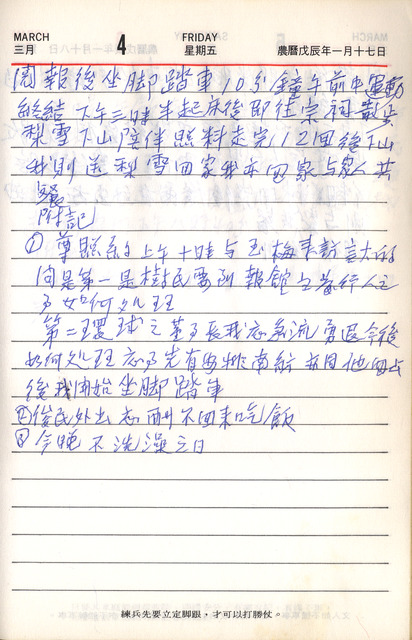 MARCH 4 FRIDAY
三月 星期五 農曆戊辰年一月十七日
閱報後坐脚踏車10分鐘午前中運動
終結下午三時半起床後即往宗祠散步
梨雪下山陪伴照料走完12回後下山
我則送梨雪回家我亦回家与家人共
餐
附記
① 尊熙約上午十時与玉梅來訪討
問是第一是樹民要到報館之發行人之
事如何処理
第二環球之董事長我志急流勇退今後
如何処理 先有安排南紡 他
後我開始坐脚踏車
② 俊民外出 不回來吃飯
③ 今晚不洗澡三日
練兵先要立定脚跟,才可以打勝仗。